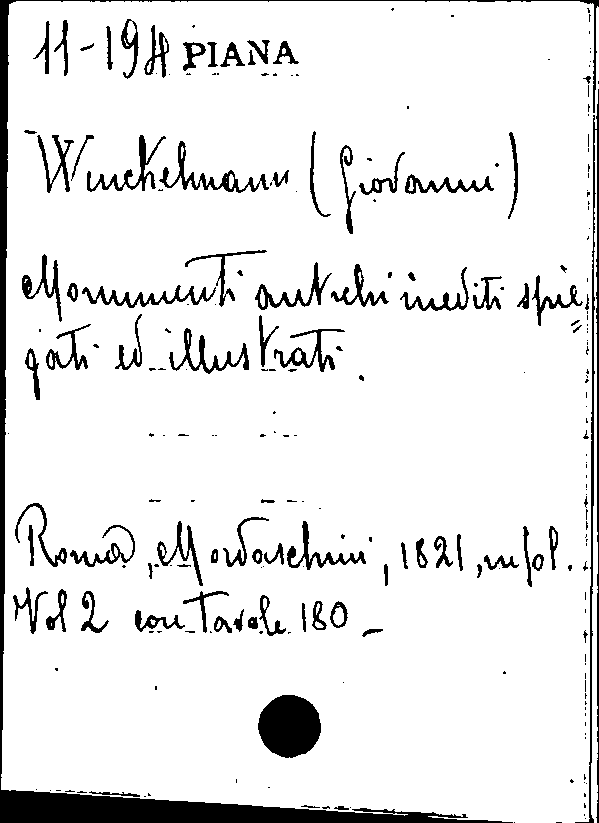 11-194 PIANA
Winckelmann (Giovanni)
Monumenti antichi inediti spie=
gati ed illustrati.
Roma, Mordacchini, 1821, in fol.
Vol 2 con Tavole 180 -